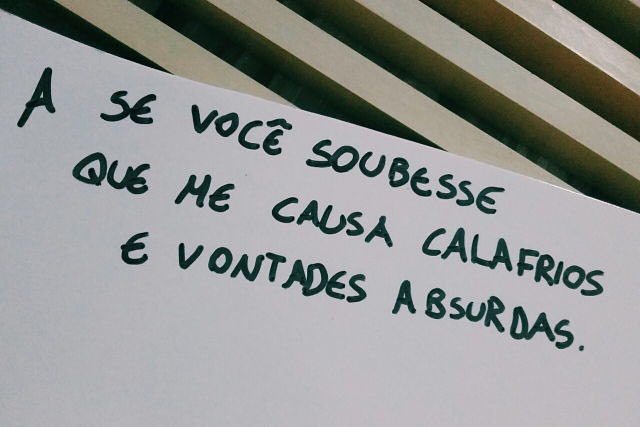 A SE VOCÊ SOUBESSE
QUE ME CAUSA CALAFRIOS
E VONTADES ABSURDAS.